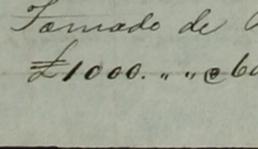 Tomado de
£1000. „ „ @ 60